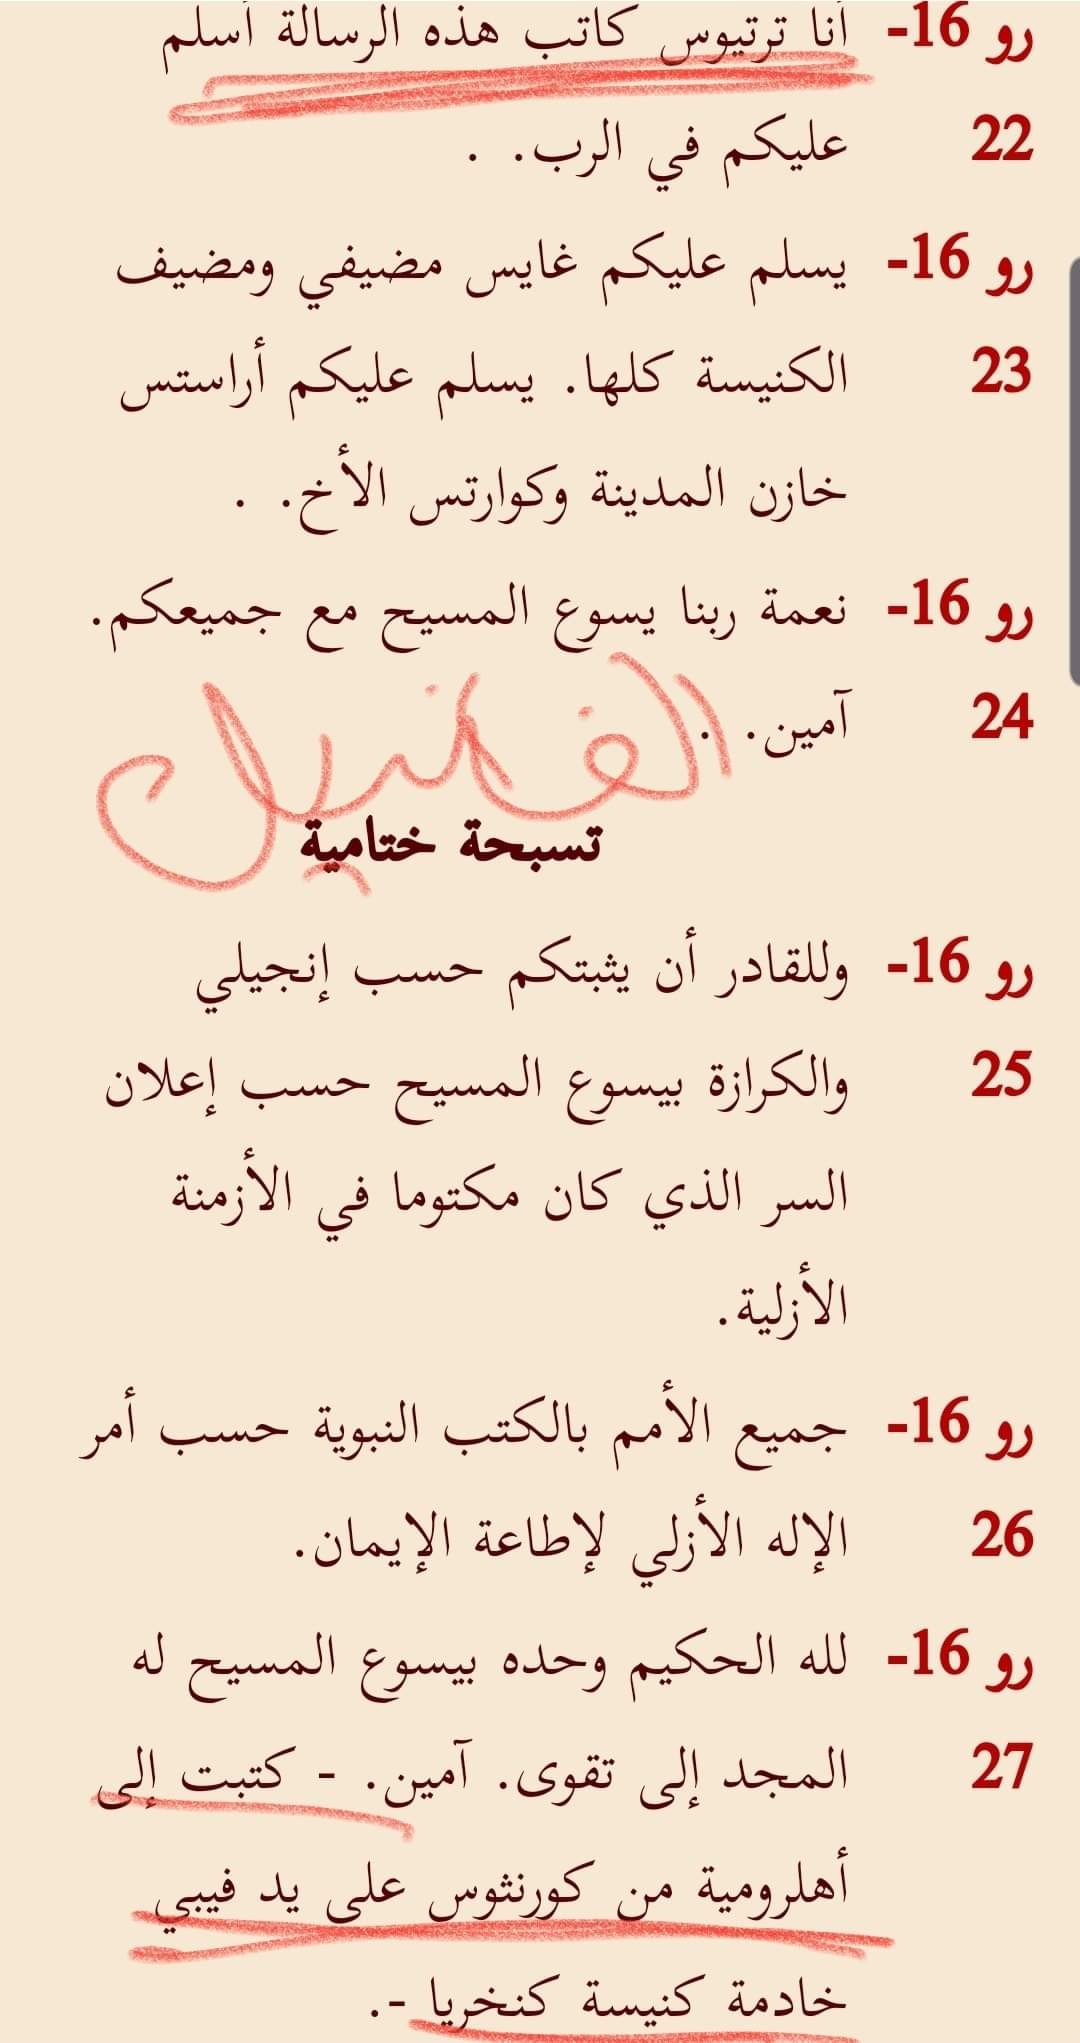 رو 16- أنا ترتيوس كاتب هذه الرسالة أسلم
22 عليكم في الرب. .
رو 16- يسلم عليكم غايس مضيفي ومضيف
23 الكنيسة كلها. يسلم عليكم أراستس
خازن المدينة وكوارتس الأخ. .
رو 16- نعمة ربنا يسوع المسيح مع جميعكم.
24 آمين. .
تسبحة ختامية
رو 16- وللقادر أن يثبتكم حسب إنجيلي
25 والكرازة بيسوع المسيح حسب إعلان
السر الذي كان مكتوما في الأزمنة
الأزلية.
رو 16- جميع الأمم بالكتب النبوية حسب أمر
26 الإله الأزلي لإطاعة الإيمان.
رو 16- لله الحكيم وحده بيسوع المسيح له
27 المجد إلى تقوى. آمين. - كتبت إلى
أهلرومية من كورنثوس على يد فيبي
خادمة كنيسة كنخريا -.